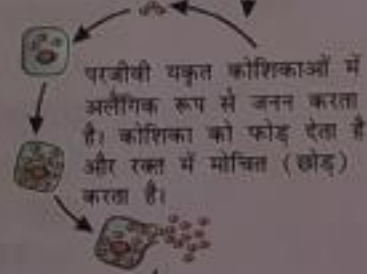 परजीवी यकृत कोशिकाओं में
अलैंगिक रूप से जनन करता
है। कोशिका को फोड़ देता है
और रक्त में मोचित (छोड़)
करता है।